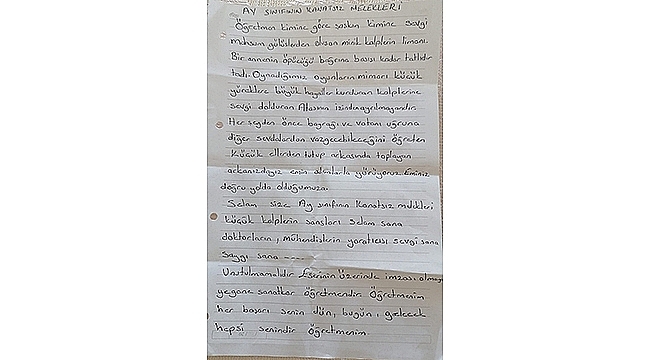 AY SINIFININ KANATSIZ MELEKLERİ
Öğretmen kimine göre kimine sevgi
mahsum gülüşlerden oluşan minik kalplerin limanı.
Bir annenin öpücüğü bağrına basışı kadar tatlıdır
tadı. Oynadığımız oyunların mimarı küçük
yüreklere büyük hayaller kurduran kalplerine
sevgi dolduran Atasının izinden ayrılmayandır.
Her şeyden önce bayrağı ve vatanı uğruna
diğer sevdalardan vazgeçebileceğini öğreten
küçük ellerden tutup arkasında toplayan
arkanızdayız emin adımlarla yürüyoruz. Eminiz
doğru yolda olduğumuza.
Selam size Ay sınıfının Kanatsız melekleri
küçük kalplerin şansları Selam sana
doktorların, mühendislerin yaratıcısı sevgi sana
saygı sana ----
Unutulmamalıdır Eserinin üzerinde imzası olmayan
yegane sanatkar öğretmendir. Öğretmenim
her başarı senin dün, bugün, gelecek
hepsi senindir öğretmenim.